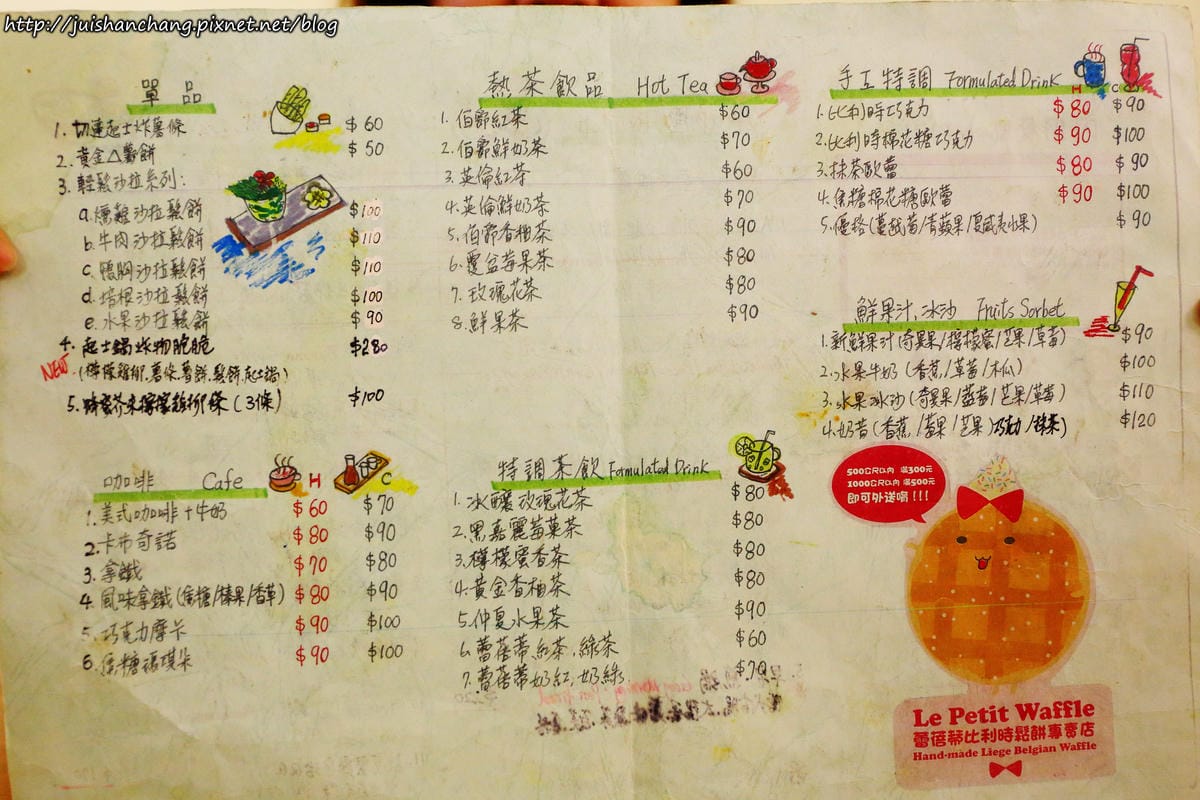 http://juishanchang.pixnet.net/blog
單品
1. 切達起士炸薯條 $60
2. 黃金△薯餅 $50
3. 輕鬆沙拉系列:
a. 燻雞沙拉鬆餅 $100
b. 牛肉沙拉鬆餅 $110
c. 鴨胸沙拉鬆餅 $110
d. 培根沙拉鬆餅 $100
e. 水果沙拉鬆餅 $90
4. 起士鍋炸物脆脆 $280
NEW
(檸檬雞柳.薯條.薯餅.鬆餅.起士鍋)
5. 蜂蜜芥末檸檬雞柳條(3條) $100
咖啡 Cafe H C
1. 美式咖啡+牛奶 $60 $70
2. 卡布奇諾 $80 $90
3. 拿鐵 $70 $80
4. 風味拿鐵(焦糖/榛果/香草) $80 $90
5. 巧克力摩卡 $90 $100
6. 焦糖瑪琪朵 $90 $100
熱茶飲品 Hot Tea
1. 伯爵紅茶 $60
2. 伯爵鮮奶茶 $70
3. 英倫紅茶 $60
4. 英倫鮮奶茶 $70
5. 伯爵香柚茶 $90
6. 覆盆莓果茶 $80
7. 玫瑰花茶 $80
8. 鮮果茶 $90
特調茶飲 Formulated Drink
1. 冰釀玫瑰花茶 $80
2. 黑嘉麗莓菓茶 $80
3. 檸檬蜜香茶 $80
4. 黃金香柚茶 $80
5. 仲夏水果茶 $90
6. 蕾蓓蒂紅茶.綠茶 $60
7. 蕾蓓蒂奶紅.奶綠. $70
手工特調 Formulated Drink H C
1. 比利時巧克力 $80 $90
2. 比利時棉花糖巧克力 $90 $100
3. 抹茶歐蕾 $80 $90
4. 焦糖棉花糖歐蕾 $90 $100
5. 優格(蔓越莓/青蘋果/夏威夷水果) $90
鮮果汁.冰沙 Fruits Sorbet
1. 新鮮果汁(奇異果/檸檬蜜/芒果/草莓) $90
2. 水果牛奶(香蕉/草莓/木瓜) $100
3. 水果冰沙(奇異果/藍莓/芒果/草莓) $110
4. 奶昔(香蕉/莓果/芒果)巧克力/抹茶) $120
500公尺以內 滿300元
1000公尺以內 滿500元
即可外送唷!!!
Le Petit Waffle
蕾蓓蒂比利時鬆餅專賣店
Hand-made Liege Belgian Waffle